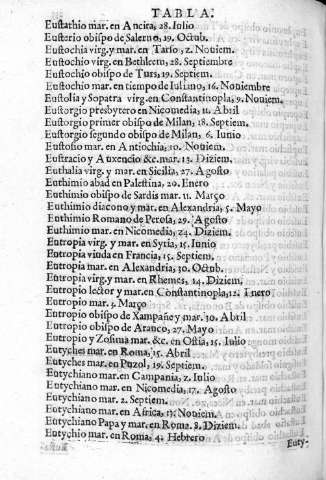 TABLA.
Eustathio mar. en Ancira, 28. Iulio
Eusterio obispo de Salerno, 19. Octub.
Eustochia virg. y mar. en Tarso, 2. Nouiem.
Eustochio virg. en Bethleem, 28. Septiembre
Eustochio obispo de Turs, 19. Septiem.
Eustochio mar. en tiempo de Iuliano, 16. Nouiembre
Eustolia y Sopatra virg. en Constantinopla, 9. Nouiem.
Eustorgio presbytero en Nicomedia, 11. Abril
Eustorgio primer obispo de Milan, 18. Septiem.
Eustorgio segundo obispo de Milan, 6. Iunio
Eustosio mar. en Antiochia, 10. Nouiem.
Eustracio y Auxencio &c. mar. 13. Diziem.
Euthalia virg. y mar. en Sicilia, 27. Agosto
Euthimio abad en Palestina, 20. Enero
Euthimio obispo de Sardis mar. 11. Março
Euthimio diacono y mar. en Alexandria, 5. Mayo
Euthimio Romano de Perosa, 29. Agosto
Euthimio mar. en Nicomedia, 24. Diziem.
Eutropia virg. y mar. en Syria, 15. Iunio
Eutropia viuda en Francia, 15. Septiem.
Eutropia mar. en Alexandria, 30. Octub.
Eutropia virg. y mar. en Rhemes, 14. Diziem.
Eutropio lector y mar. en Constantinopla, 12. Enero
Eutropio mar. 3. Março
Eutropio obispo de Xampañe y mar. 30. Abril
Eutropio obispo de Aranco, 27. Mayo
Eutropio y Zosima mar. &c. en Ostia, 15. Iulio
Eutyches mar. en Roma, 15. Abril
Eutyches mar. en Puzol, 19. Septiem.
Eutychiano mar. en Campania, 2. Iulio
Eutychiano mar. en Nicomedia, 17. Agosto
Eutychiano mar. 2. Septiem.
Eutychiano mar. en Africa, 13. Nouiem.
Eutychiano Papa y mar. en Roma. 8. Diziem.
Eutychio mar. en Roma, 4. Hebrero
Euty-